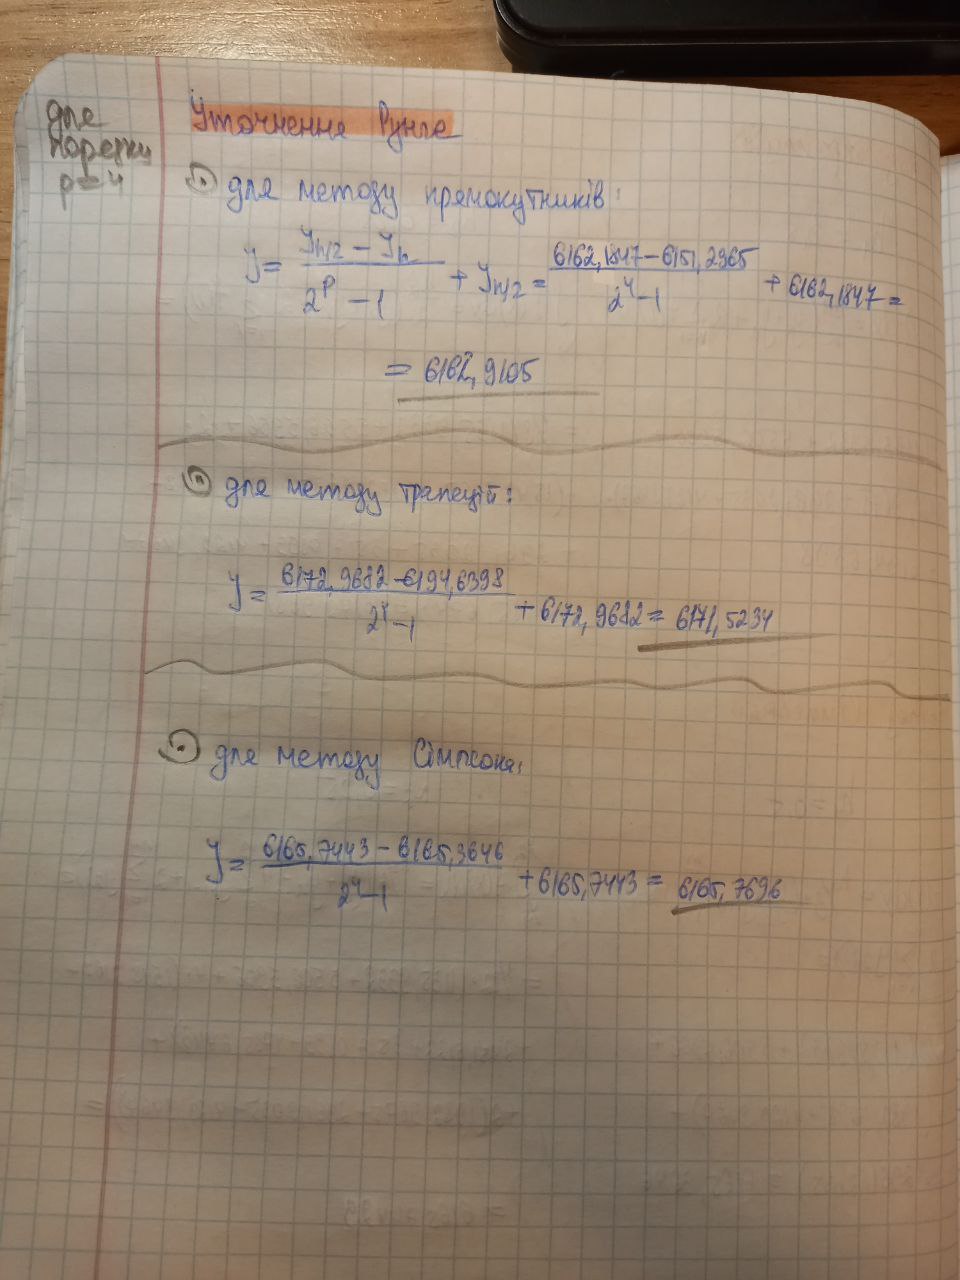 для
порядку
p=4
Уточнення Рунге
для методу прямокутників:
y = (y_{h/2} - y_h) / (2^p - 1) + y_{h/2} = (6162,1847 - 6151,2965) / (2^4 - 1) + 6162,1847 =
= 6162,9105
для методу трапецій:
y = (6172,9682 - 6194,6398) / (2^4 - 1) + 6172,9682 = 6171,5234
для методу Сімпсона:
y = (6165,7443 - 6165,3646) / (2^4 - 1) + 6165,7443 = 6165,7696